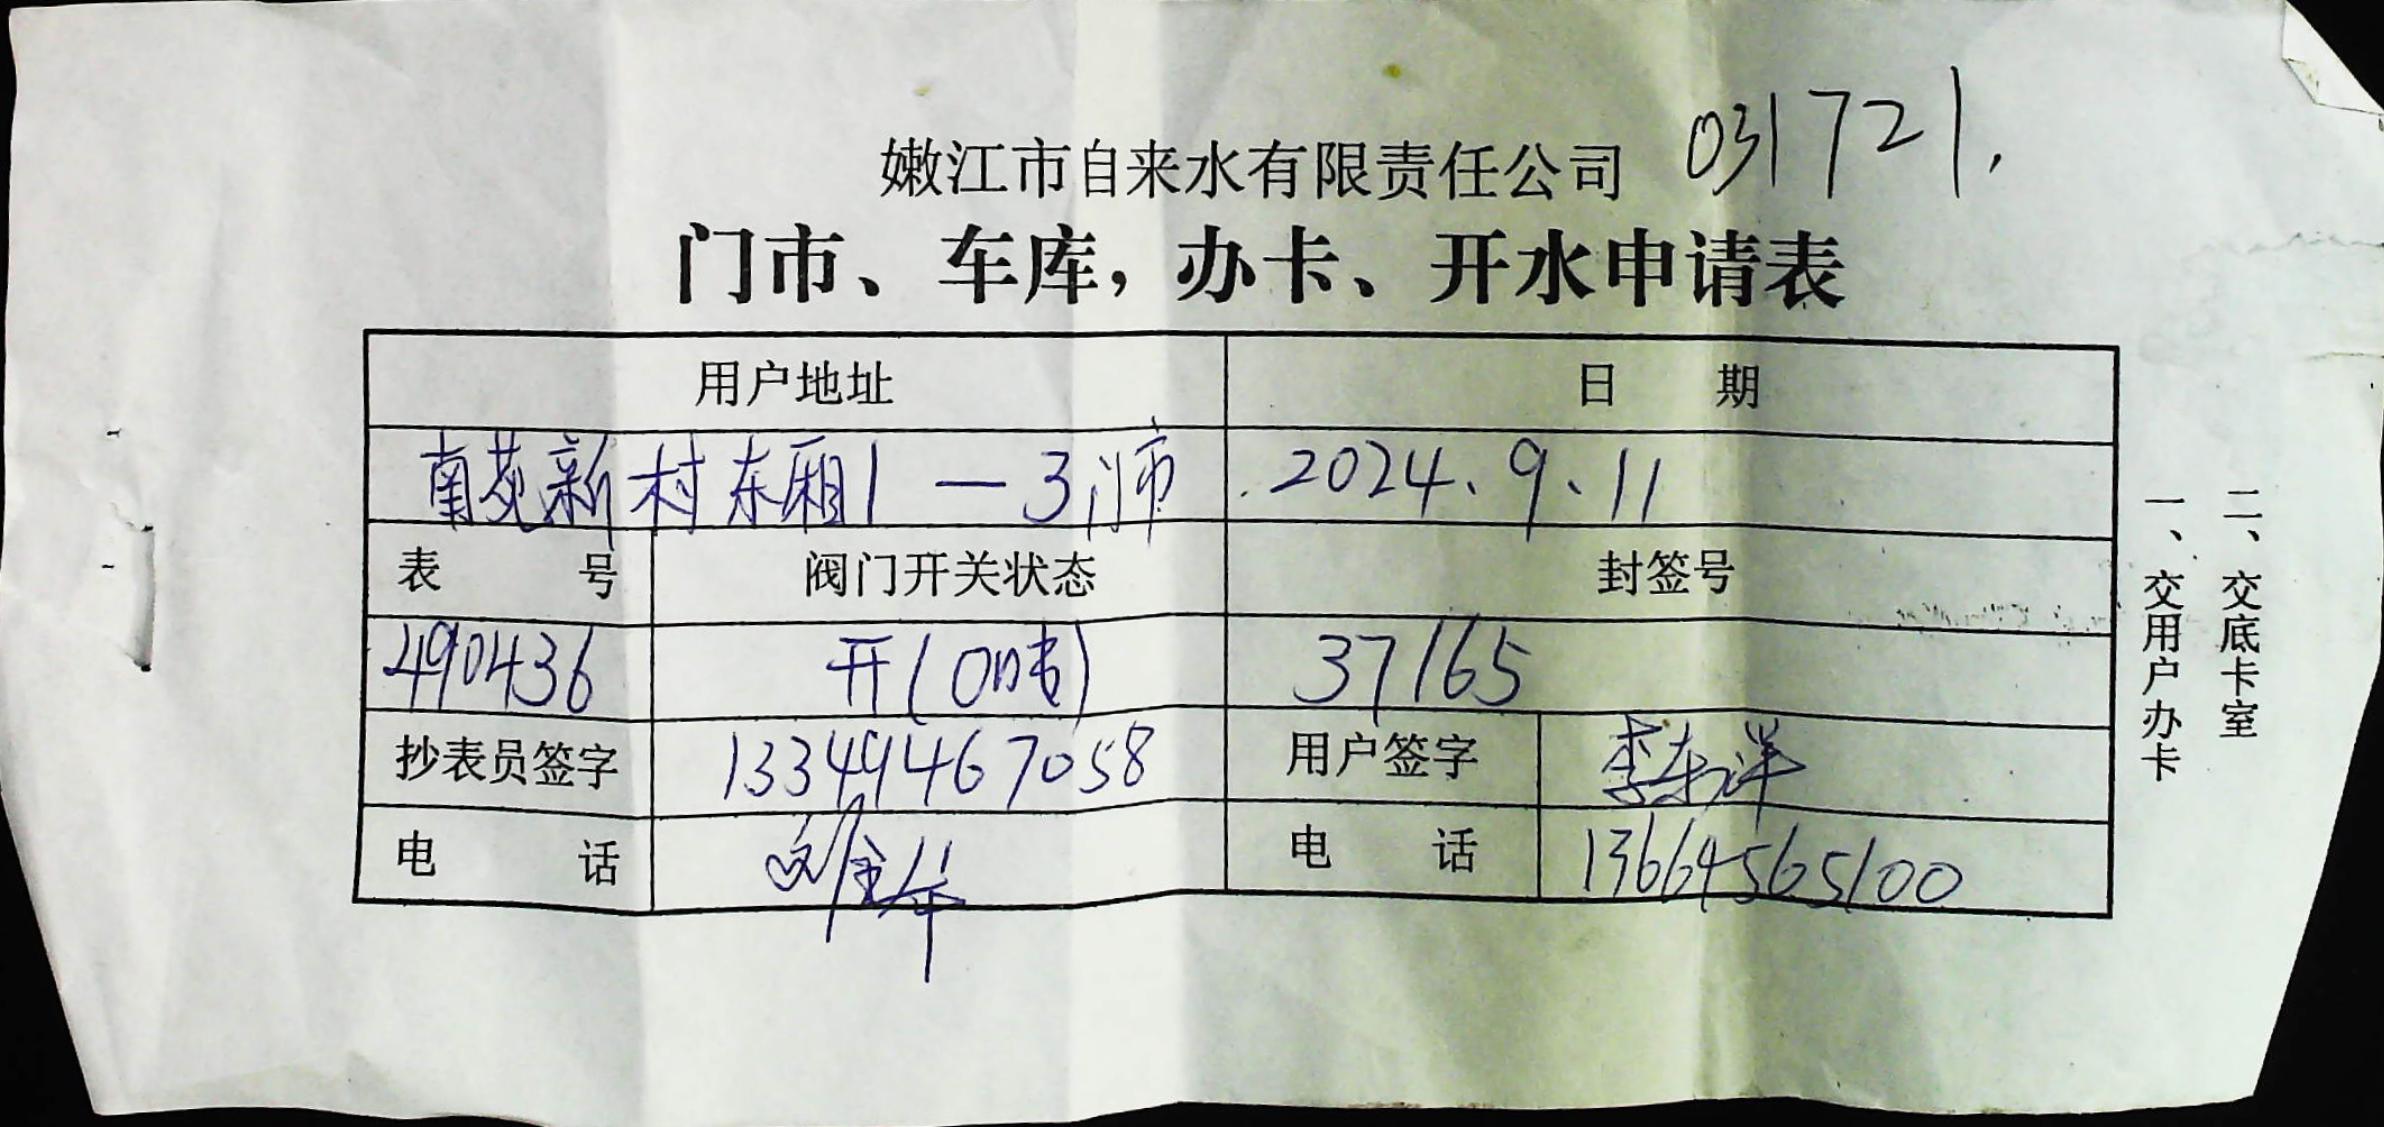 嫩江市自来水有限责任公司 031721.
门市、车库，办卡、开水申请表
用户地址 日 期
南苑新村东厢1—3门市 2024、9、11
表 号 阀门开关状态 封签号
490436 开(0吨) 37165
抄表员签字 13349467058 用户签字 李东洋
电 话 刘金华 电 话 13664565100
一、交用户办卡
二、交底卡室